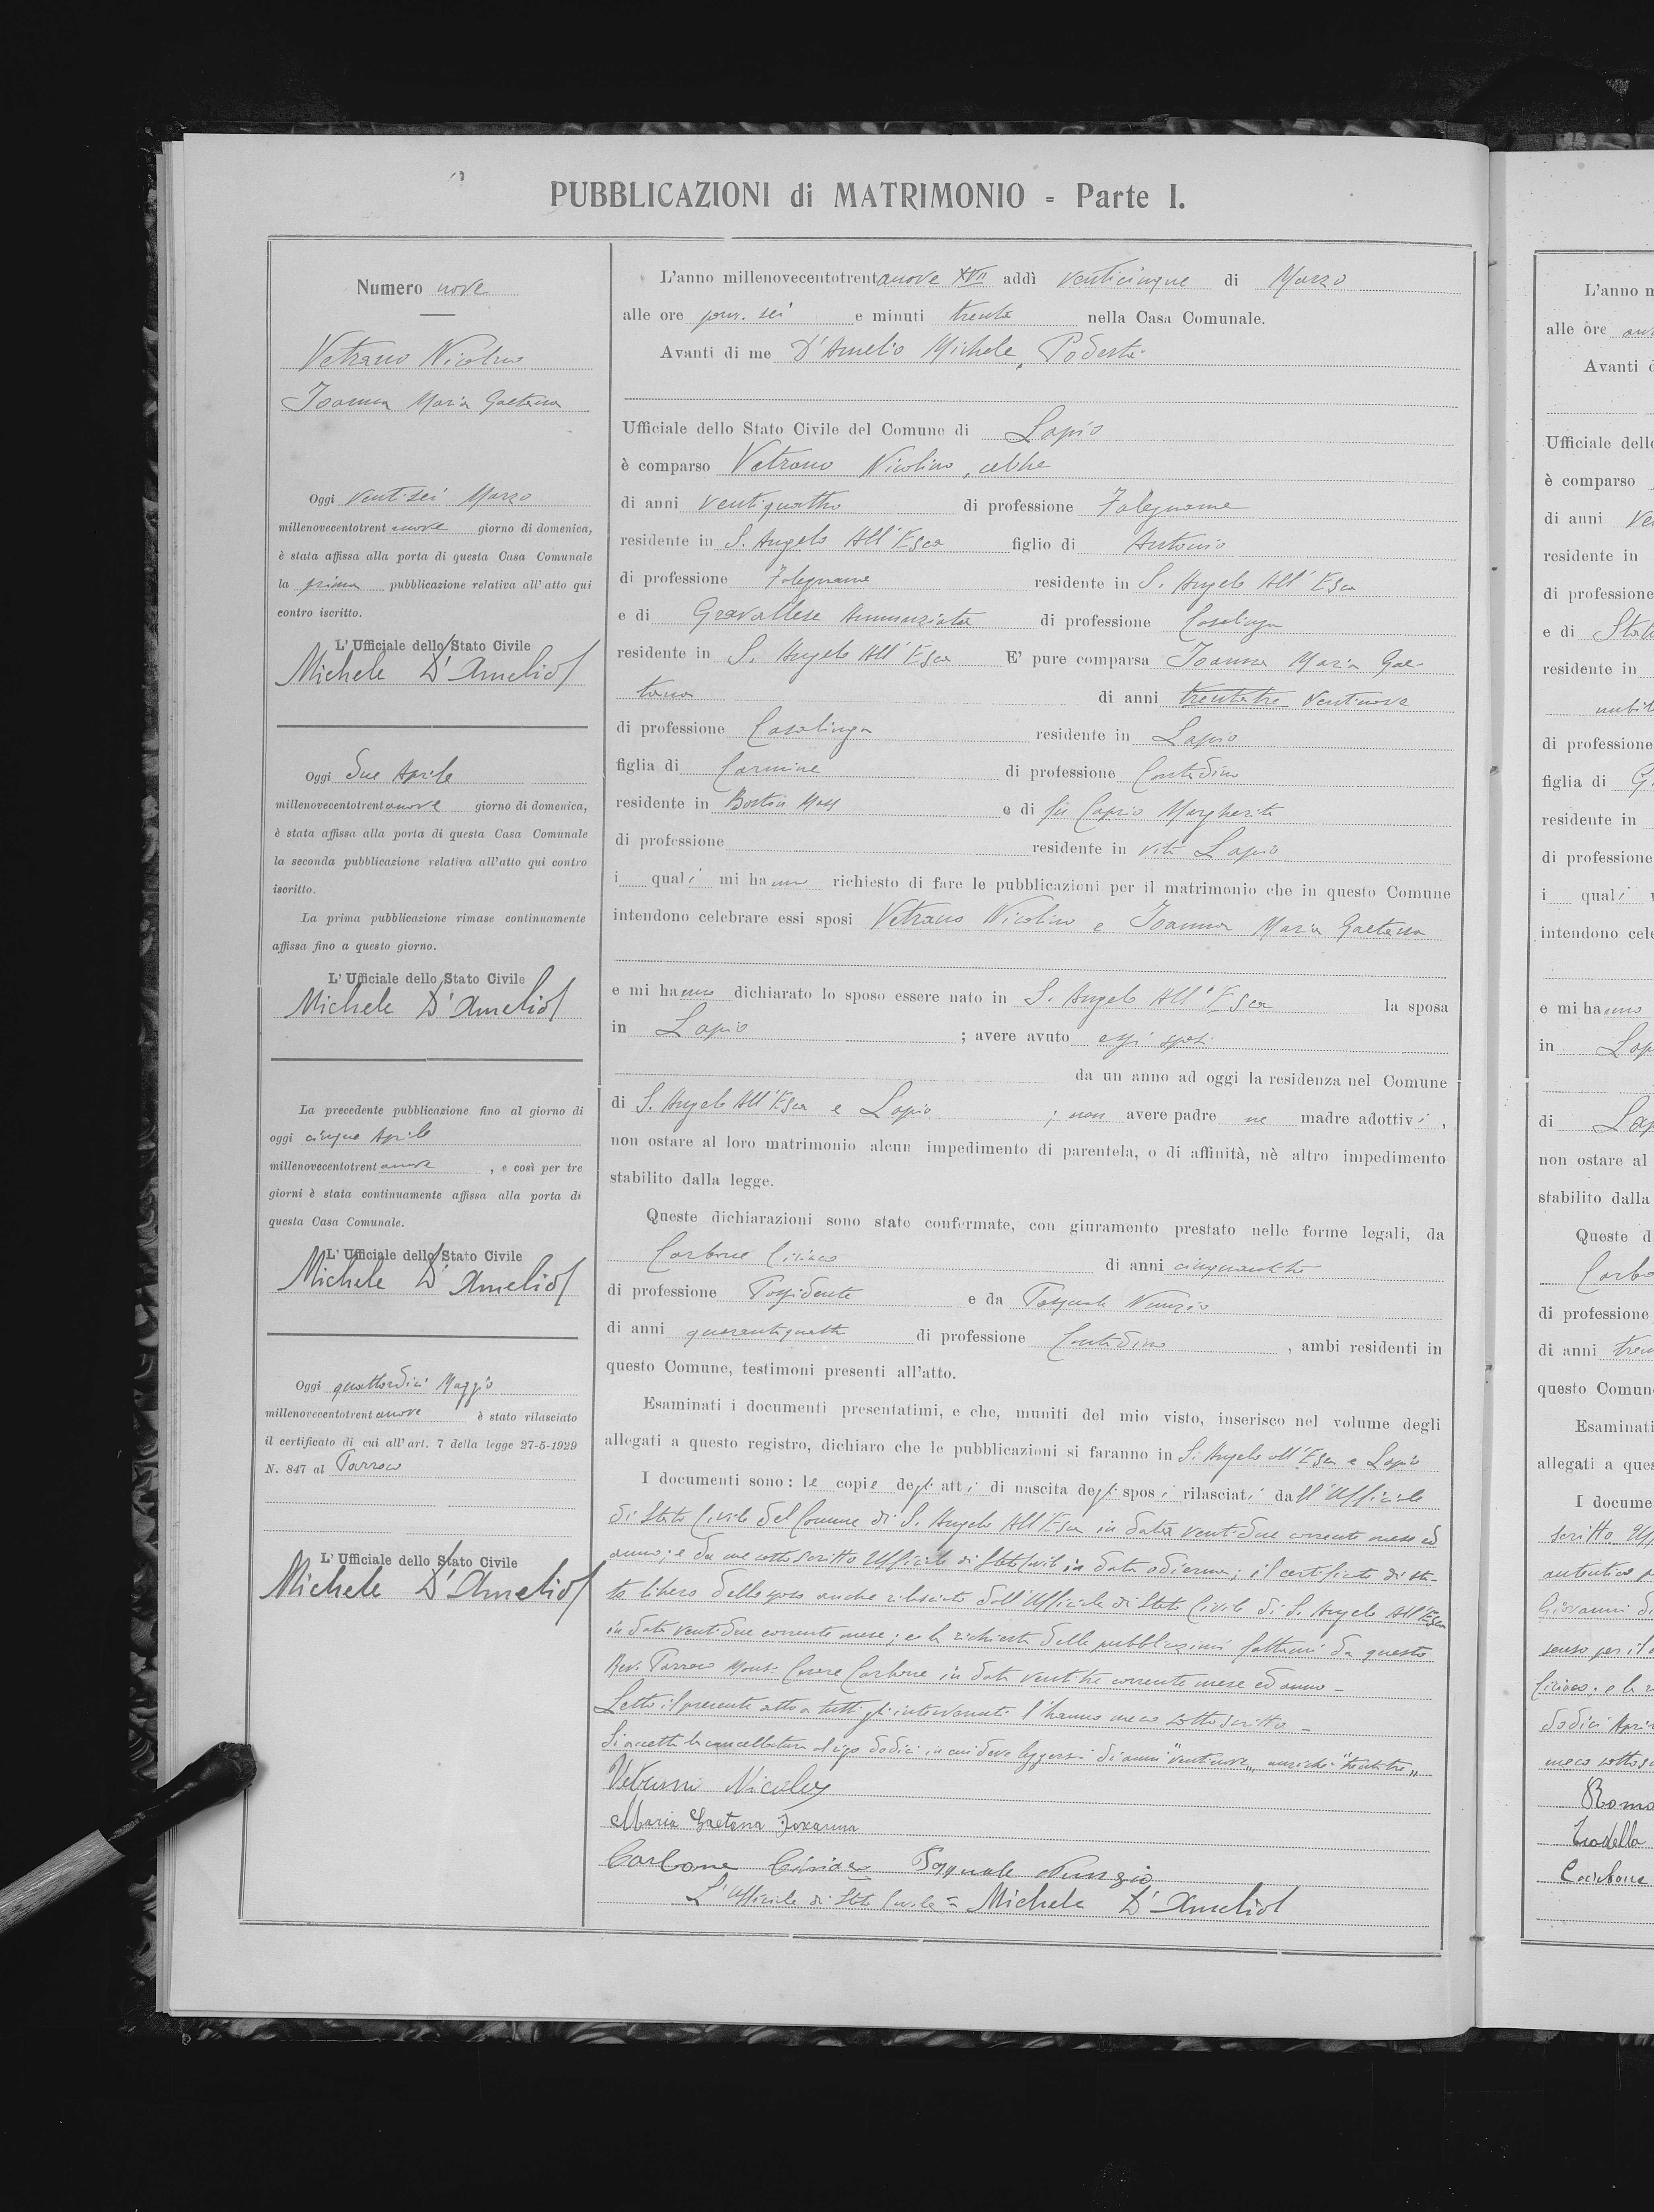 PUBBLICAZIONI di MATRIMONIO - Parte I.
Numero nove
Vetrano Nicolino
Joanna Maria Gaetana
Oggi ventisei Marzo
millenovecentotrentanove giorno di domenica,
è stata affissa alla porta di questa Casa Comunale
la prima pubblicazione relativa all'atto qui
contro iscritto.
L'Ufficiale dello Stato Civile
Michele D'Amelio
Oggi due Aprile
millenovecentotrentanove giorno di domenica,
è stata affissa alla porta di questa Casa Comunale
la seconda pubblicazione relativa all'atto qui contro
iscritto.
La prima pubblicazione rimase continuamente
affissa fino a questo giorno.
L'Ufficiale dello Stato Civile
Michele D'Amelio
La precedente pubblicazione fino al giorno di
oggi cinque Aprile
millenovecentotrentanove, e così per tre
giorni è stata continuamente affissa alla porta di
questa Casa Comunale.
L'Ufficiale dello Stato Civile
Michele D'Amelio
Oggi quattordici Maggio
millenovecentotrentanove è stato rilasciato
il certificato di cui all'art. 7 della legge 27-5-1929
N. 847 al Parroco
L'Ufficiale dello Stato Civile
Michele D'Amelio
L'anno millenovecentotrentanove XVII addì venticinque di Marzo
alle ore pom. sei e minuti trenta nella Casa Comunale.
Avanti di me D'Amelio Michele, Podestà
Ufficiale dello Stato Civile del Comune di Lapio
è comparso Vetrano Nicolino, celibe
di anni ventiquattro di professione Falegname
residente in S. Angelo All'Esca figlio di Antonio
di professione Falegname residente in S. Angelo All'Esca
e di Gravallese Annunziata di professione Casalinga
residente in S. Angelo All'Esca E' pure comparsa Joanna Maria Gae-
tana di anni trentatre ventinove
di professione Casalinga residente in Lapio
figlia di Carmine di professione Contadino
residente in Boston Mass e di fu Caprio Margherita
di professione residente in vita Lapio
i quali mi hanno richiesto di fare le pubblicazioni per il matrimonio che in questo Comune
intendono celebrare essi sposi Vetrano Nicolino e Joanna Maria Gaetana
e mi hanno dichiarato lo sposo essere nato in S. Angelo All'Esca la sposa
in Lapio ; avere avuto essi sposi
da un anno ad oggi la residenza nel Comune
di S. Angelo All'Esca e Lapio ; non avere padre ne madre adottivi,
non ostare al loro matrimonio alcun impedimento di parentela, o di affinità, nè altro impedimento
stabilito dalla legge.
Queste dichiarazioni sono state confermate, con giuramento prestato nelle forme legali, da
Carbone Ciriaco di anni
di professione Possidente e da Pasquale Nunzio
di anni quarantiquattro di professione Contadino, ambi residenti in
questo Comune, testimoni presenti all'atto.
Esaminati i documenti presentatimi, e che, muniti del mio visto, inserisco nel volume degli
allegati a questo registro, dichiaro che le pubblicazioni si faranno in S. Angelo all'Esca e Lapio
I documenti sono: le copie degli atti di nascita degli sposi rilasciati dall'Ufficiale
di Stato Civile del Comune di S. Angelo All'Esca in data ventidue corrente mese ed
anno; e da me sottoscritto Ufficiale di Stato Civile in data odierna; il certificato di sta-
to libero dello sposo anche rilasciato dall'Ufficiale di Stato Civile di S. Angelo All'Esca
in data ventidue corrente mese; e la richiesta delle pubblicazioni fattami da questo
Rev. Parroco Mons. Cesare Carbone in data ventitre corrente mese ed anno -
Letto il presente atto a tutti gli intervenuti l'hanno meco sottoscritto -
Si accetta la cancellatura al rigo dodici in cui deve leggersi di anni "ventinove" anzichè "trentatre"
Vetrano
Maria Gaetana Joxanna
Carbone Ciriaco Pasquale Nunzio
L'Ufficiale di Stato Civile = Michele D'Amelio
L'anno m
alle ore
Avanti d
Ufficiale dello
è comparso
di anni
residente in
di professione
e di
residente in
nubile
di professione
figlia di
residente in
di professione
i quali
intendono cele
e mi hanno
in Lap
di Lap
non ostare al
stabilito dalla
Queste d
Carbo
di professione
di anni tren
questo Comun
Esaminati
allegati a ques
I docume
scritto Uff
Giovanni
Ciriaco; e la
dodici Apri
meco sottos
Roma
Carbone